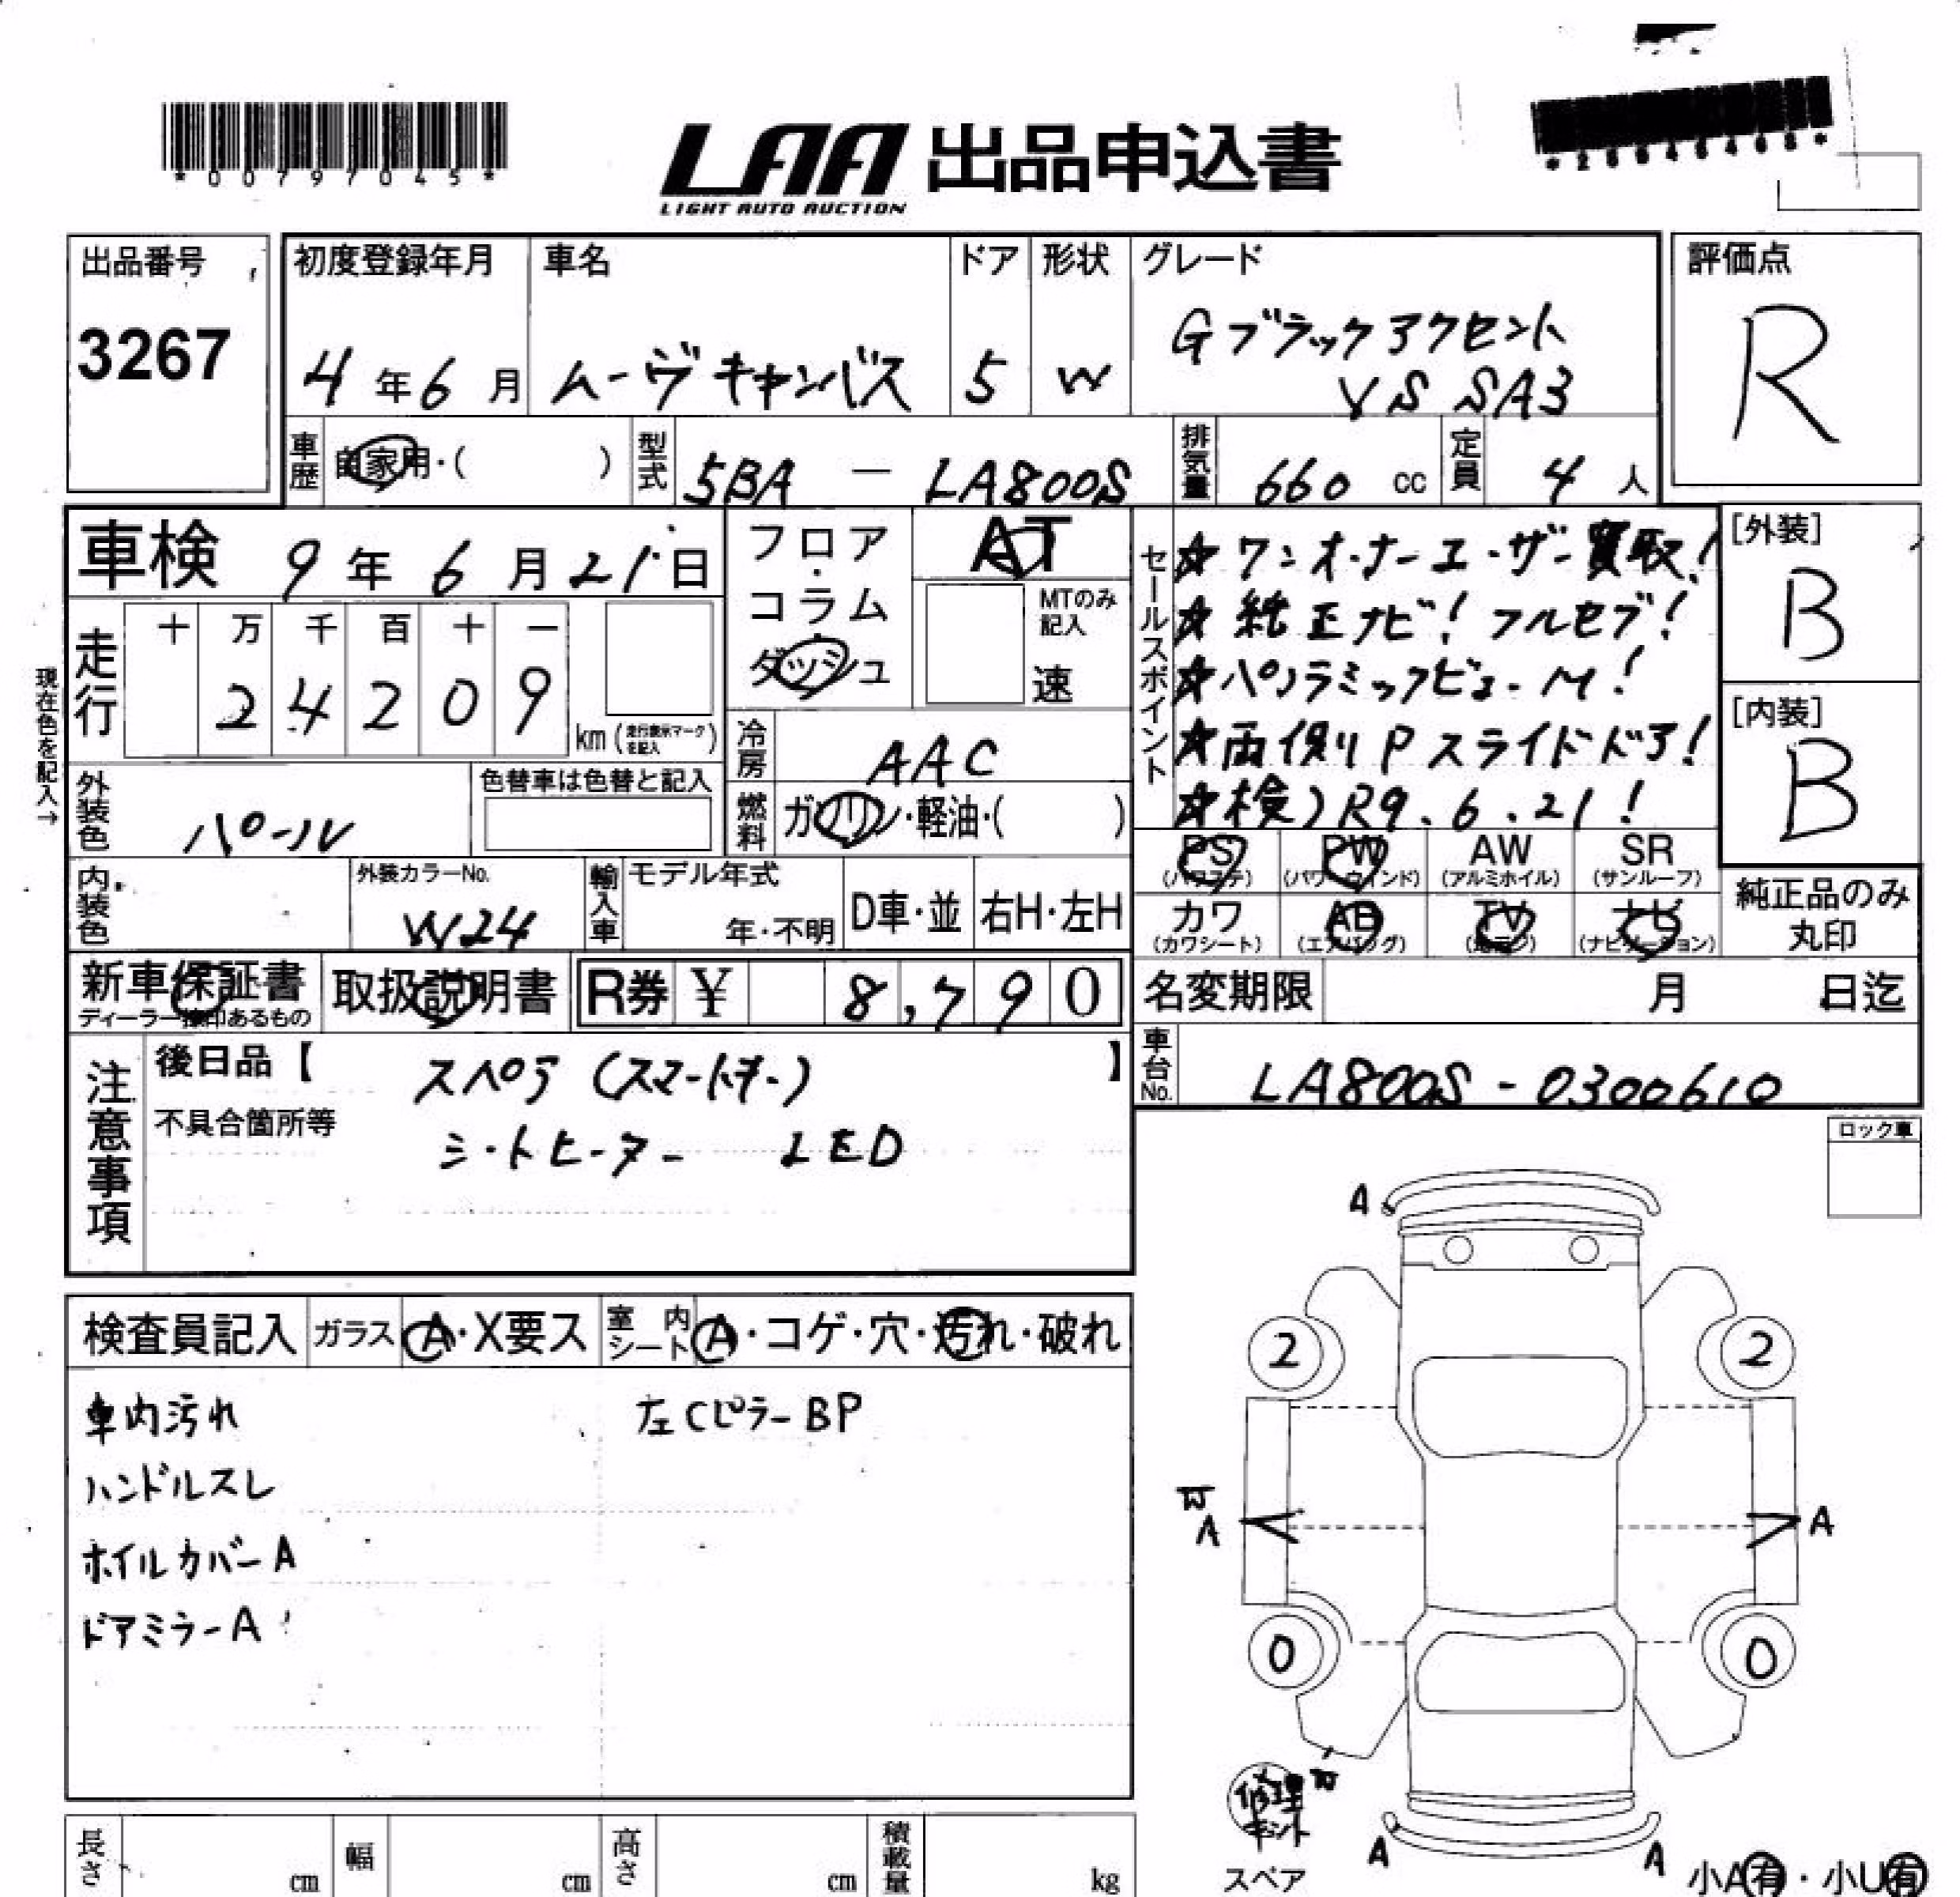 *00797045*
LAA 出品申込書
LIGHT AUTO AUCTION
出品番号
3267
初度登録年月
4年6月
車名
ムーヴキャンバス
ドア
5
形状
W
グレード
Gブラックアクセント
VS SA3
評価点
R
車歴
自家用・( )
型式
5BA - LA800S
排気量
660 cc
定員
4人
車検 9年6月21日
フロア・コラム
ダッシュ
AT
MTのみ記入
速
セールスポイント
☆ワンオーナーユーザー買取!
☆純正ナビ!フルセグ!
☆パノラミックビューM!
☆両側Pスライドドア!
☆検)R9.6.21!
[外装]
B
[内装]
B
現在色を記入→
走行
十 万 千 百 十 一
2 4 2 0 9
km (走行表示マークを記入)
冷房
AAC
燃料
ガソリン・軽油・( )
外装色
パール
色替車は色替と記入
内装色
外装カラーNo.
W24
輸入車
モデル年式
年・不明
D車・並
右H・左H
PS
(パワステ)
PW
(パワーウィンド)
AW
(アルミホイル)
SR
(サンルーフ)
カワ
(カワシート)
AB
(エアバッグ)
TV
ナビ
(ナビゲーション)
純正品のみ
丸印
新車保証書
ディーラー捺印あるもの
取扱説明書
R券 ¥ 8,790
名変期限 月 日迄
車台No.
LA800S-0300610
注意事項
後日品【 スペア(スマートキー) 】
不具合箇所等
シートヒーター LED
ロック車
検査員記入
ガラス
A・X要ス
室内シート
A・コゲ・穴・汚れ・破れ
車内汚れ 左CピラーBP
ハンドルスレ
ホイルカバーA
ドアミラーA
A
2 2
A A
0 0
修理キット
スペア
A A
小A有・小U有
長さ cm
幅 cm
高さ cm
積載量 kg